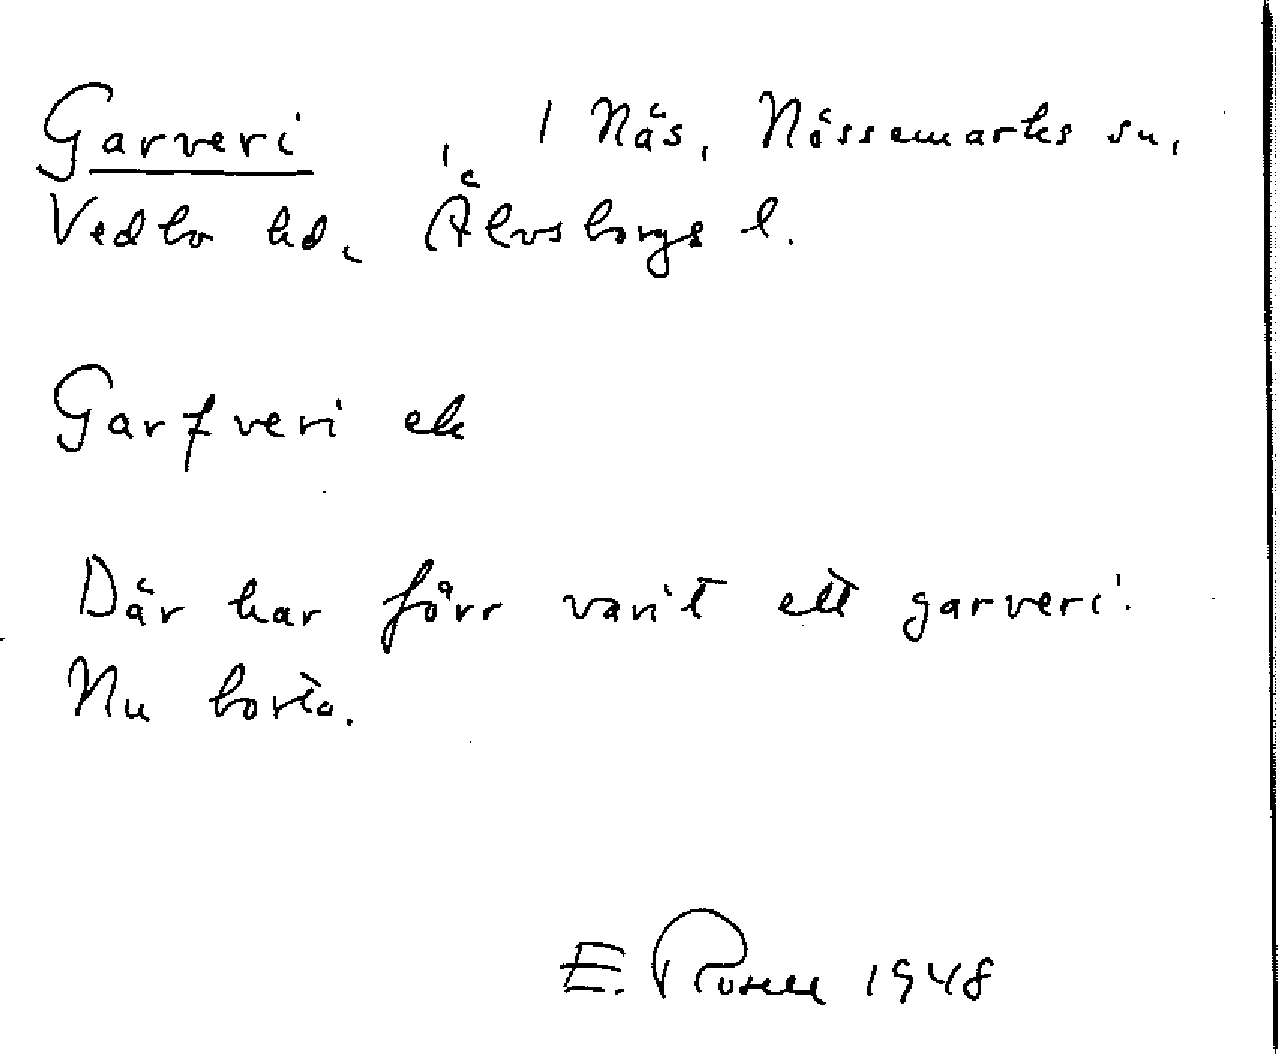 Garveri, 1 Näs, Nössemarks sn,
Vedbo hd, Älvsborgs l.
Garfveri ek
Där har förr varit ett garveri.
Nu borta.
E. Rosell 1948